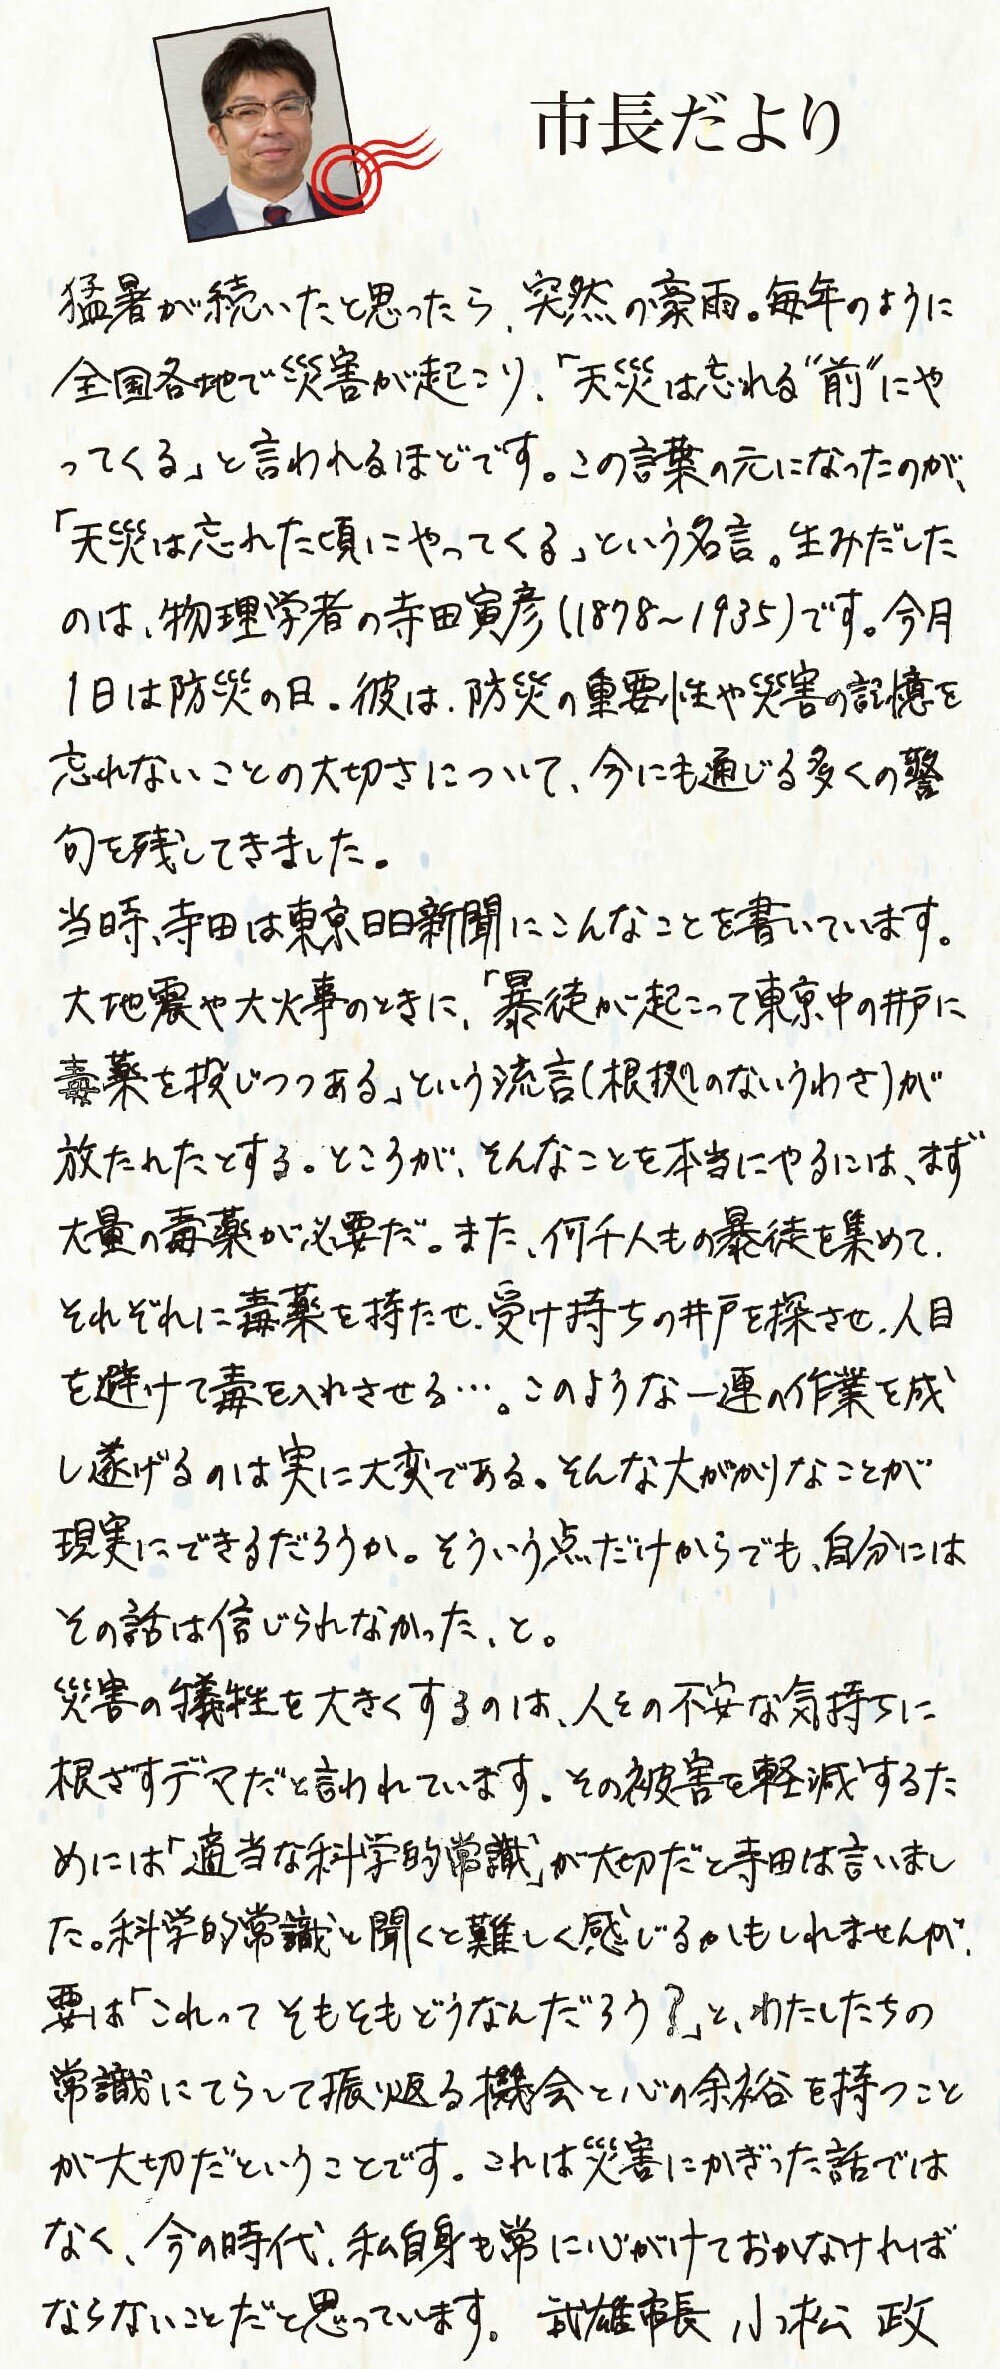 市長だより
猛暑が続いたと思ったら、突然の豪雨。毎年のように
全国各地で災害が起こり、「天災は忘れる“前”にや
ってくる」と言われるほどです。この言葉の元になったのが、
「天災は忘れた頃にやってくる」という名言。生みだした
のは、物理学者の寺田寅彦(1878〜1935)です。今月
1日は防災の日。彼は、防災の重要性や災害の記憶を
忘れないことの大切さについて、今にも通じる多くの警
句を残してきました。
当時、寺田は東京日日新聞にこんなことを書いています。
大地震や大火事のときに、「暴徒が起こって東京中の井戸に
毒薬を投じつつある」という流言(根拠のないうわさ)が
放たれたとする。ところが、そんなことを本当にやるには、まず
大量の毒薬が必要だ。また、何千人もの暴徒を集めて、
それぞれに毒薬を持たせ、受け持ちの井戸を探させ、人目
を避けて毒を入れさせる…。このような一連の作業を成
し遂げるのは実に大変である。そんな大がかりなことが
現実にできるだろうか。そういう点だけからでも、自分には
その話は信じられなかった、と。
災害の犠牲を大きくするのは、人々の不安な気持ちに
根ざすデマだと言われています。その被害を軽減するた
めには「適当な科学的常識」が大切だと寺田は言いまし
た。科学的常識と聞くと難しく感じるかもしれませんが、
要は「これってそもそもどうなんだろう?」と、わたしたちの
常識にてらして振り返る機会と心の余裕を持つこと
が大切だということです。これは災害にかぎった話では
なく、今の時代、私自身も常に心がけておかなければ
ならないことだと思っています。 武雄市長 小松 政